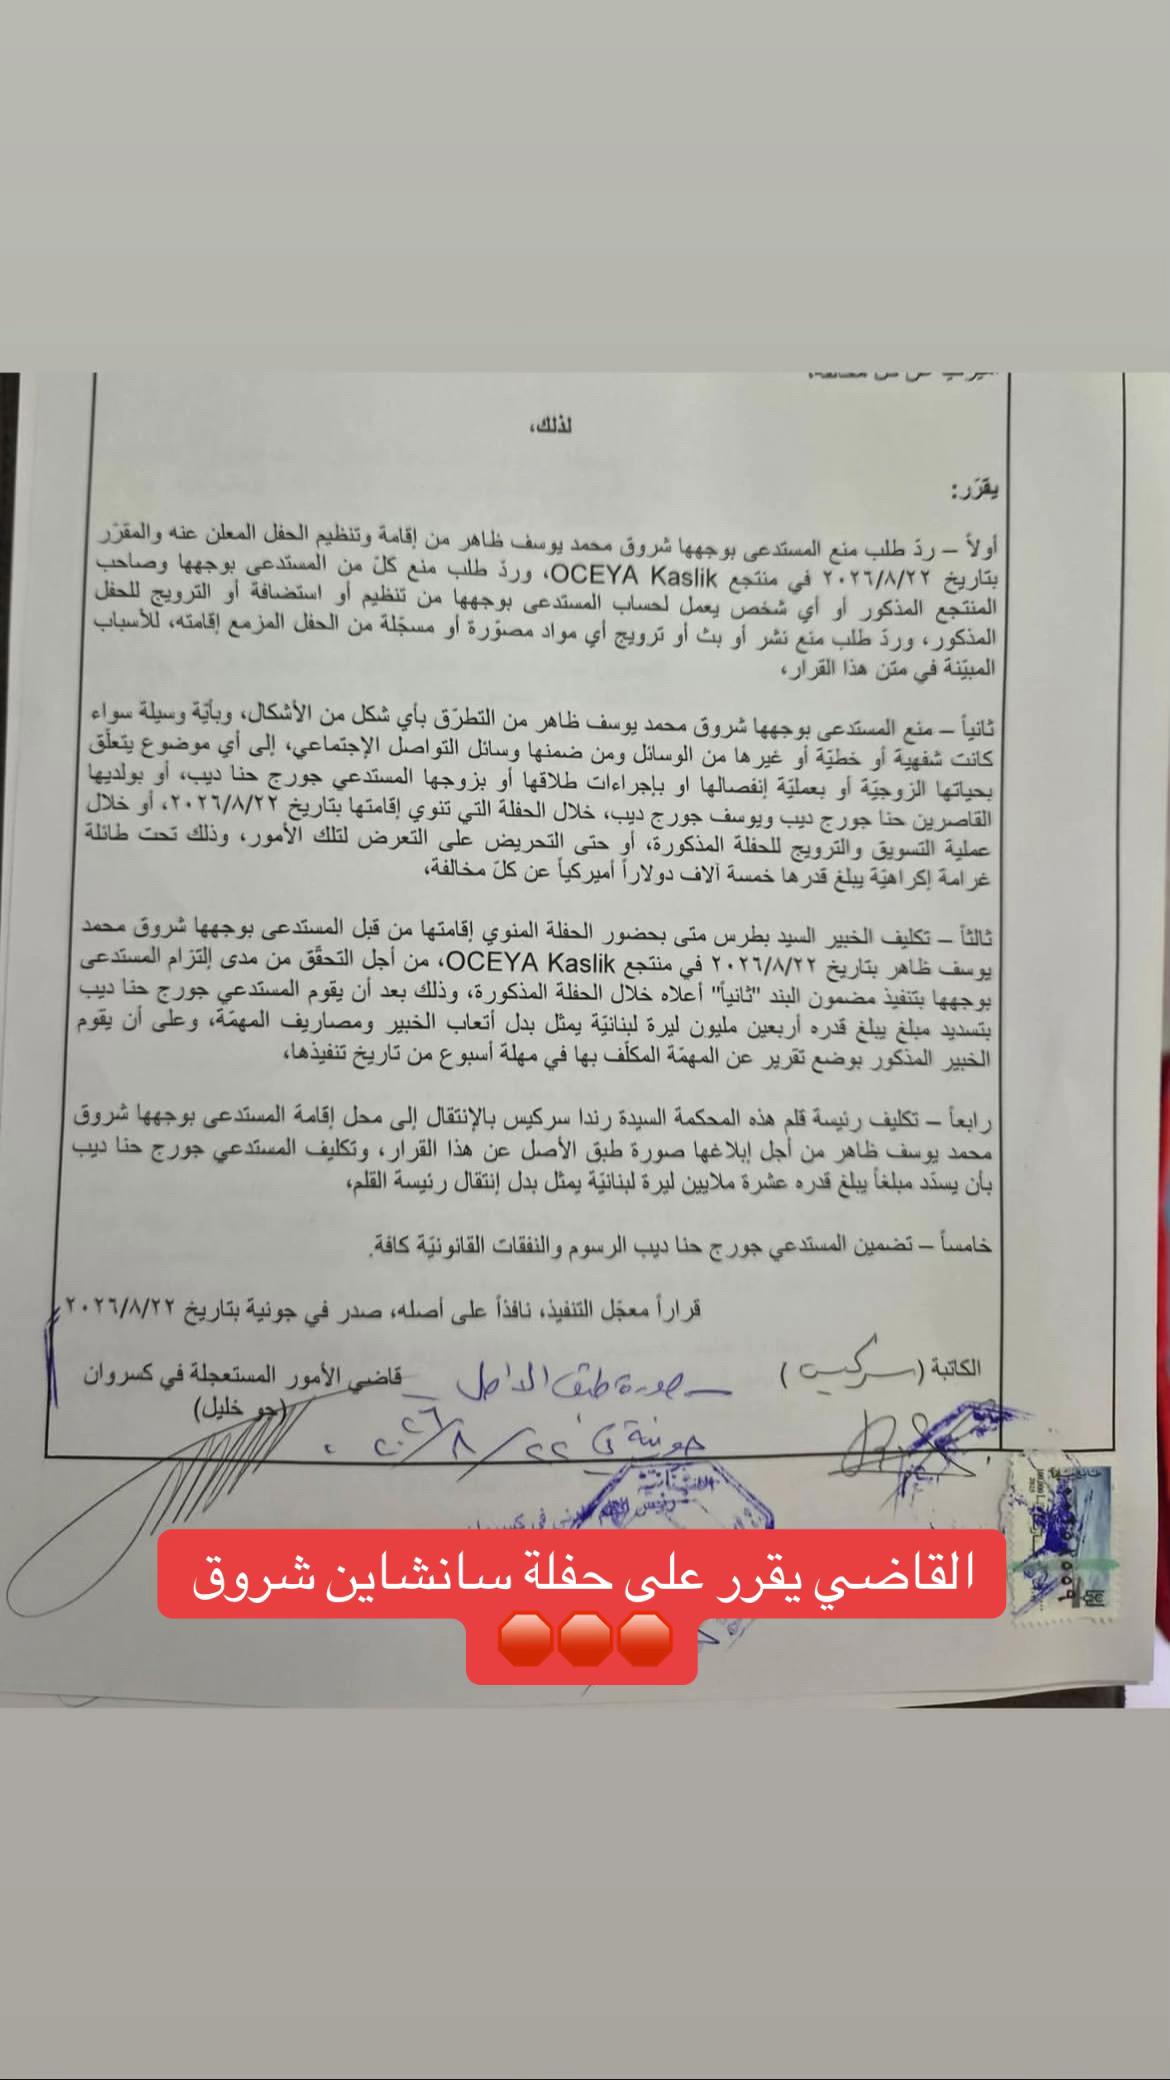 لذلك،
يقرّر:
أولاً – ردّ طلب منع المستدعى بوجهها شروق محمد يوسف ظاهر من إقامة وتنظيم الحفل المعلن عنه والمقرّر
بتاريخ ٢٠٢٦/٨/٢٢ في منتجع OCEYA Kaslik، وردّ طلب منع كلّ من المستدعى بوجهها وصاحب
المنتجع المذكور أو أي شخص يعمل لحساب المستدعى بوجهها من تنظيم أو استضافة أو الترويج للحفل
المذكور، وردّ طلب منع نشر أو بث أو ترويج أي مواد مصوّرة أو مسجّلة من الحفل المزمع إقامته، للأسباب
المبيّنة في متن هذا القرار،
ثانياً – منع المستدعى بوجهها شروق محمد يوسف ظاهر من التطرّق بأي شكل من الأشكال، وبأيّة وسيلة سواء
كانت شفهية أو خطيّة أو غيرها من الوسائل ومن ضمنها وسائل التواصل الإجتماعي، إلى أي موضوع يتعلّق
بحياتها الزوجيّة أو بعمليّة إنفصالها او بإجراءات طلاقها أو بزوجها المستدعي جورج حنا ديب، أو بولديها
القاصرين حنا جورج ديب ويوسف جورج ديب، خلال الحفلة التي تنوي إقامتها بتاريخ ٢٠٢٦/٨/٢٢، أو خلال
عملية التسويق والترويج للحفلة المذكورة، أو حتى التحريض على التعرض لتلك الأمور، وذلك تحت طائلة
غرامة إكراهيّة يبلغ قدرها خمسة آلاف دولاراً أميركياً عن كلّ مخالفة،
ثالثاً – تكليف الخبير السيد بطرس متى بحضور الحفلة المنوي إقامتها من قبل المستدعى بوجهها شروق محمد
يوسف ظاهر بتاريخ ٢٠٢٦/٨/٢٢ في منتجع OCEYA Kaslik، من أجل التحقّق من مدى إلتزام المستدعى
بوجهها بتنفيذ مضمون البند "ثانياً" أعلاه خلال الحفلة المذكورة، وذلك بعد أن يقوم المستدعي جورج حنا ديب
بتسديد مبلغ يبلغ قدره أربعين مليون ليرة لبنانيّة يمثل بدل أتعاب الخبير ومصاريف المهمّة، وعلى أن يقوم
الخبير المذكور بوضع تقرير عن المهمّة المكلّف بها في مهلة أسبوع من تاريخ تنفيذها،
رابعاً – تكليف رئيسة قلم هذه المحكمة السيدة رندا سركيس بالإنتقال إلى محل إقامة المستدعى بوجهها شروق
محمد يوسف ظاهر من أجل إبلاغها صورة طبق الأصل عن هذا القرار، وتكليف المستدعي جورج حنا ديب
بأن يسدّد مبلغاً يبلغ قدره عشرة ملايين ليرة لبنانيّة يمثل بدل إنتقال رئيسة القلم،
خامساً – تضمين المستدعي جورج حنا ديب الرسوم والنفقات القانونيّة كافة.
قراراً معجّل التنفيذ، نافذاً على أصله، صدر في جونية بتاريخ ٢٠٢٦/٨/٢٢
الكاتبة (سركيس) صورة طبق الاصل قاضي الأمور المستعجلة في كسروان
(جو خليل)
جونية في ٢٢/٨/٢٠٢٦
القاضي يقرر على حفلة سانشاين شروق
🛑🛑🛑